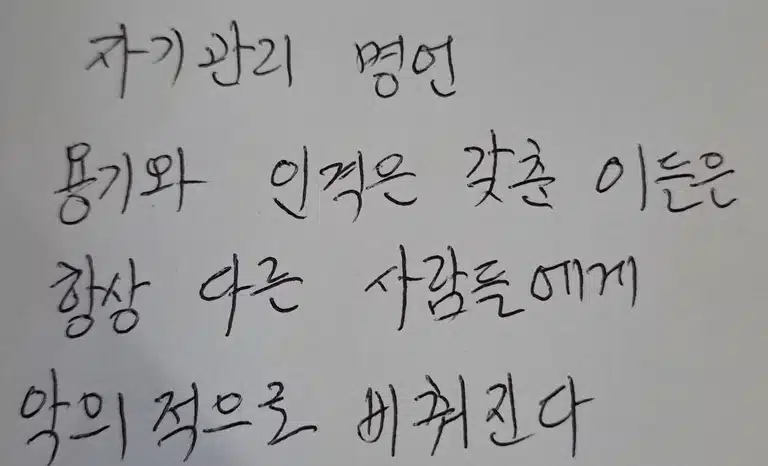 자기관리 명언
용기와 인격은 갖춘 이들은
항상 다른 사람들에게
악의적으로 비춰진다